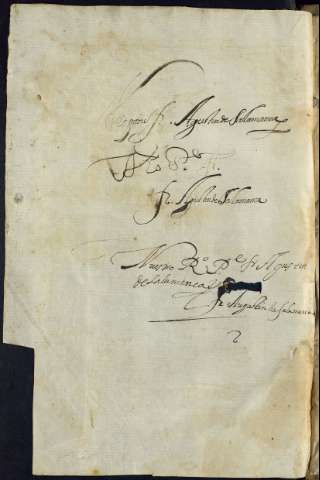 fr. Agustin de Salamanca
Pe. fr.
fr. Agustin de Salamanca
Nuestro Ro. Pe. fr. Agustin
de Salamanca
fr. Augustin de Salamanca